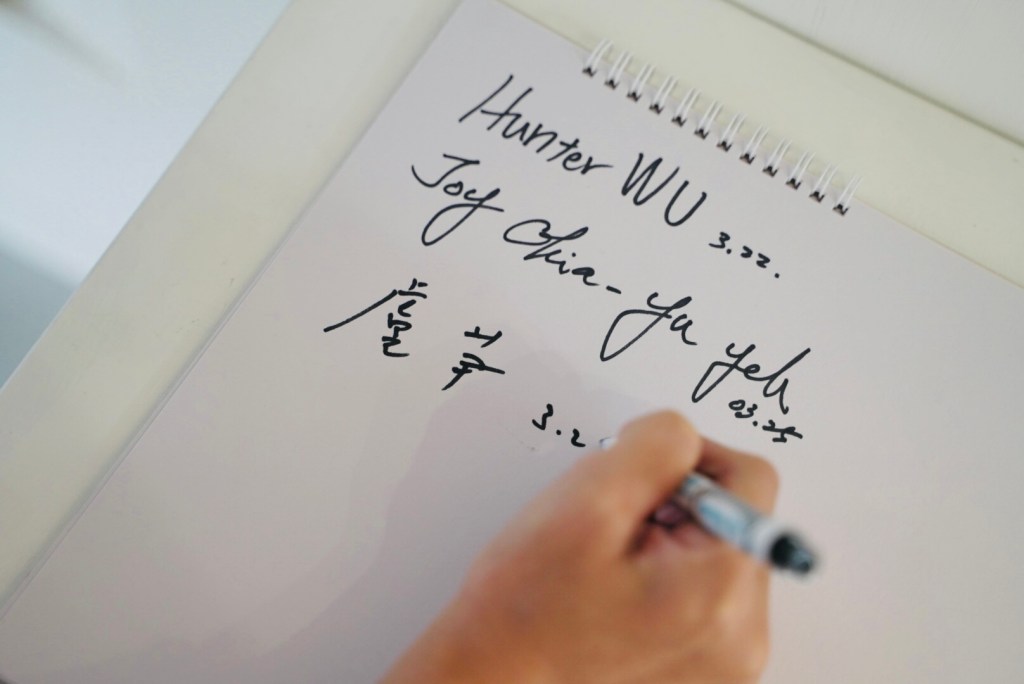 Hunter WU 3.22.
Joy Chia-Yu Yeh
03.25
3.2